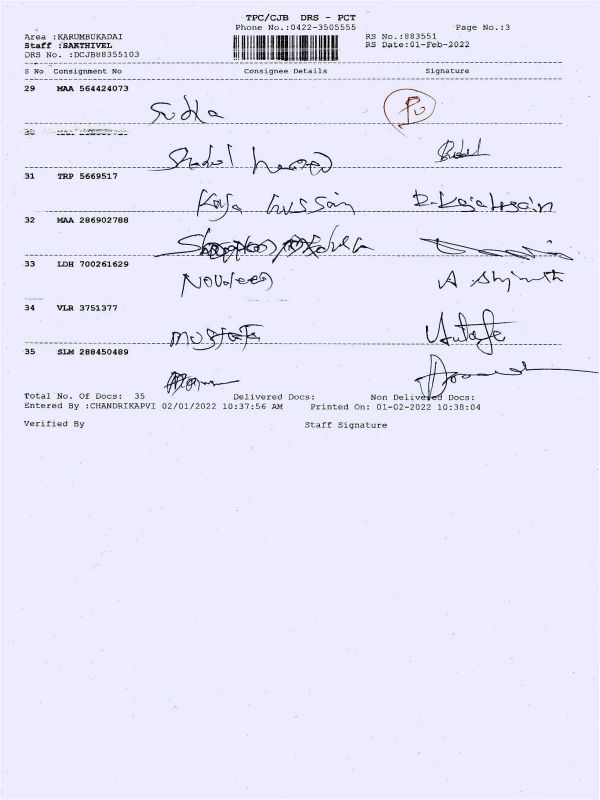 TPC/CJB DRS - PCT
Phone No.:0422-3505555 Page No.:3
Area :KARUMBUKADAI RS No.:883551
Staff :SAKTHIVEL RS Date:01-Feb-2022
DRS No. :DCJB88355103
S No Consignment No Consignee Details Signature
29 MAA 564424073
Sudha
30 MAA
31 TRP 5669517
Kaja hussain
32 MAA 286902788
33 LDH 700261629
34 VLR 3751377
Mustafa
35 SLM 288450489
Total No. Of Docs: 35 Delivered Docs: Non Delivered Docs:
Entered By :CHANDRIKAPVI 02/01/2022 10:37:56 AM Printed On: 01-02-2022 10:38:04
Verified By Staff Signature